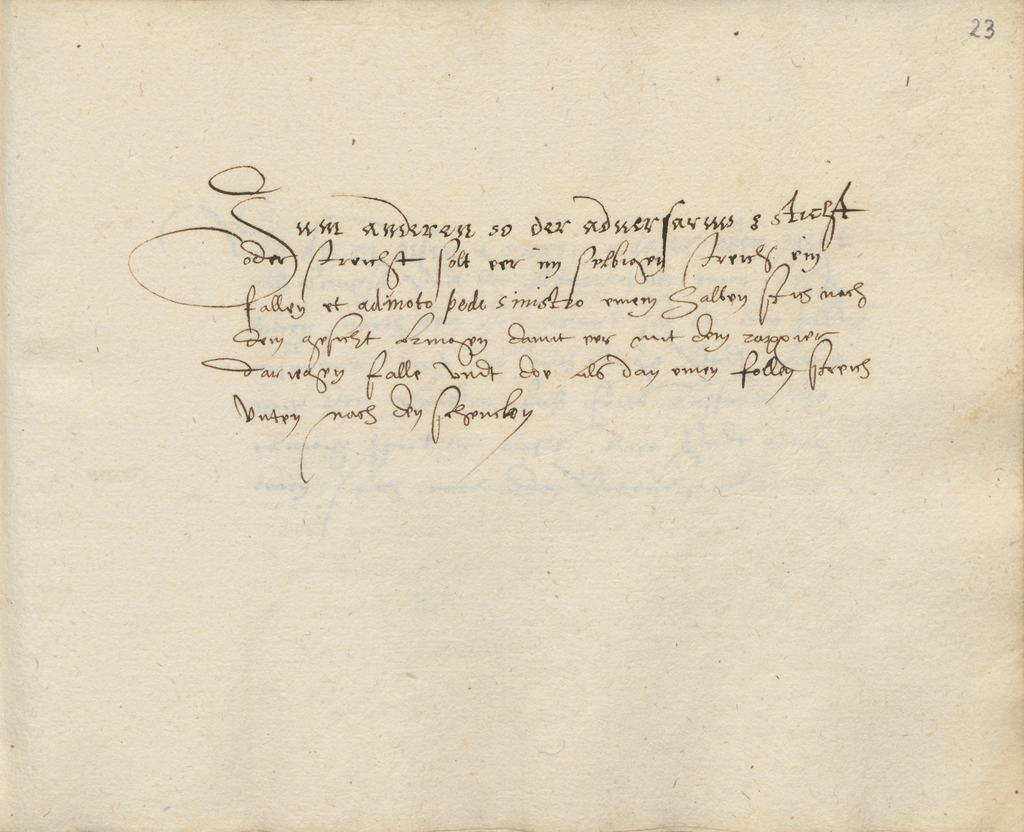 23
Zum anderen so der adversarius sticht
oder streicht solt eer im selbigen streich ein
fallen et admoto pede sinistro einem halben stich nach
dem gesicht bringen damit eer mit dem rappier
dar wegen falle undt doe als dan einen follen streich
unten nach den schencken